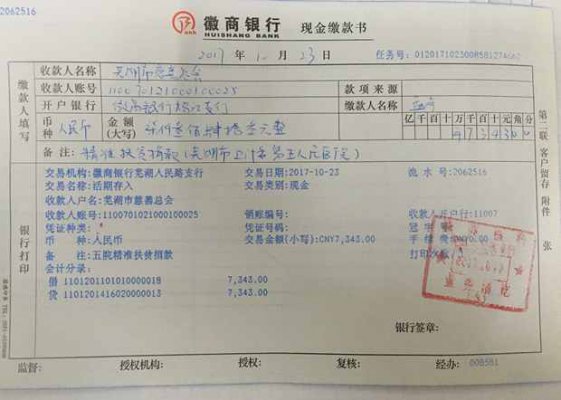 2062516
徽商银行 现金缴款书
HUISHANG BANK
2017 年 10 月 23 日 任务号:
缴款人填写
收款人名称 芜湖市慈善总会
收款人账号 1100701021000100025 款项来源
开户银行 徽商银行 支行 缴款人名称
币种 人民币 金额(大写) 柒仟叁佰肆拾叁元整 亿千百十万千百十元角分
备注: 精准扶贫捐款(芜湖市 第五人民医院)
第二联 客户留存 附件 张
银行打印
交易机构:徽商银行芜湖人民路支行 交易日期:2017-10-23 流水号:2062516
交易名称:活期存入 交易类型:现金
收款人户名:芜湖市慈善总会
收款人账号:1100701021000100025 销账编号: 收款人开户行:11007
凭证种类: 凭证号码:
币 种:人民币 交易金额(小写):CNY7,343.00
备 注:五院精准扶贫捐款
会计分录:
借 1101201101010000018 7,343.00
贷 1101201416020000013 7,343.00
银行签章:
监督: 授权机构: 授权: 复核: 经办: 008581